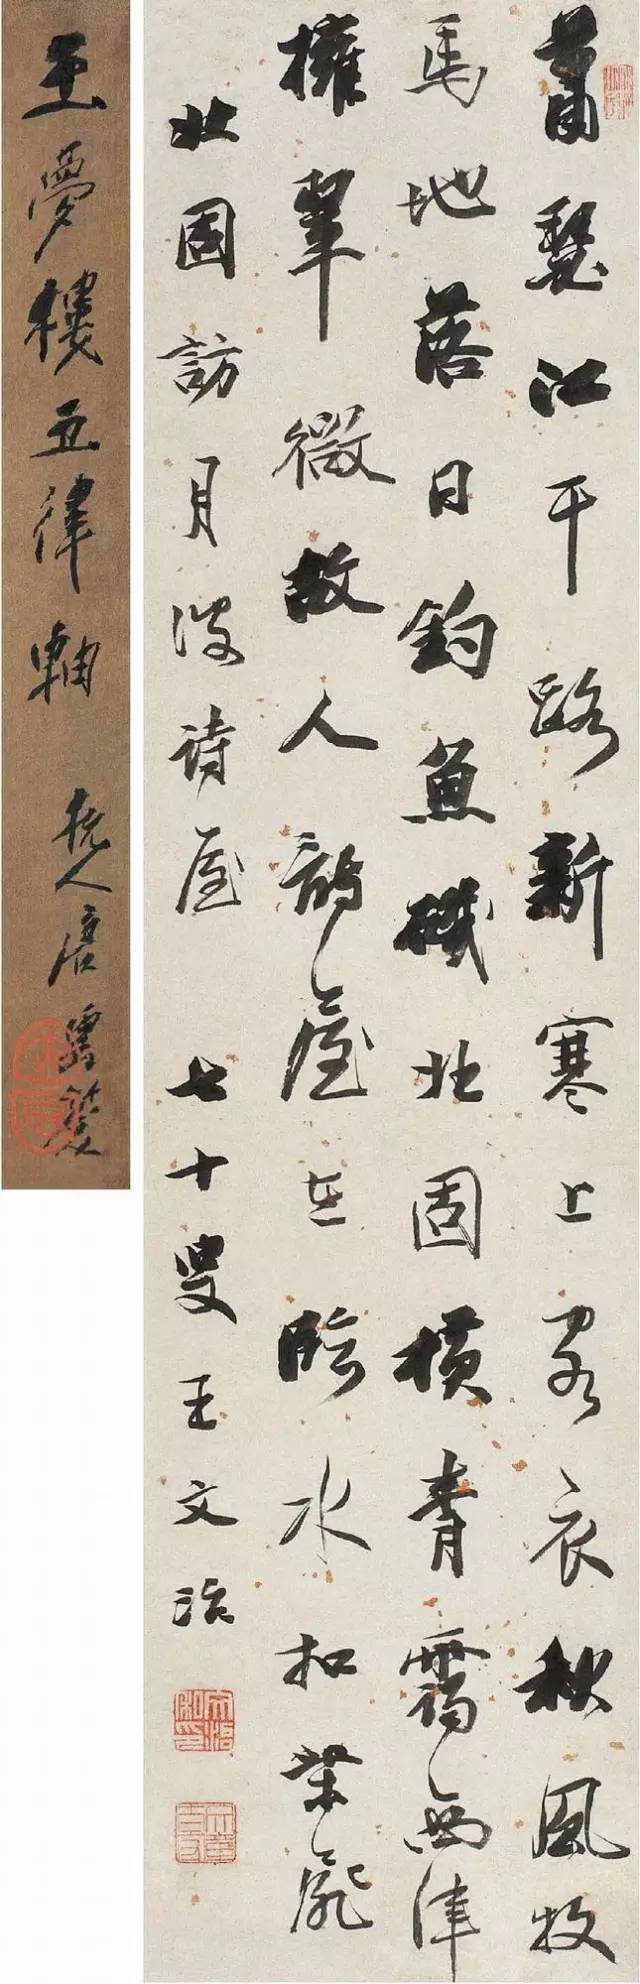 蕭瑟江干路新寒上客衣秋風牧
馬地落日釣魚磯北固橫青靄西津
擁翠微故人屋在臨水扣柴扉
北固訪月波詩屋 七十叟王文治
王夢樓五律軸 杭人唐雲題